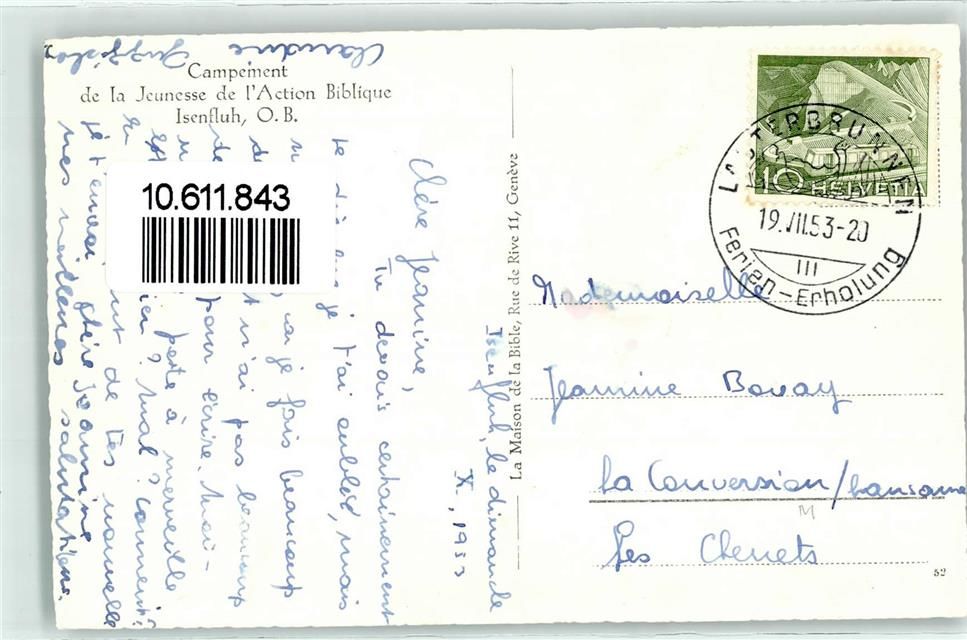 Campement
de la Jeunesse de l'Action Biblique
Isenfluh, O.B.
10.611.843
Isenfluh, le dimanche
X, 1953
Chère Jeanine,
Tu devais certainement
te dire que je t'ai oublié, mais
car je fais beaucoup
n'ai pas beaucoup
pour écrire. Moi-
porte à merveille
? Mal? Comment?
de tes nouvelles
je t'envoie chère Jeanine
mes meilleures salutations.
Claudine
La Maison de la Bible, Rue de Rive 11, Genève
10 HELVETIA
LAUTERBRUNNEN
19.VII.53-20
III
Ferien-Erholung
Mademoiselle
Jeannine Bovay
La Conversion/Lausanne
M
Les Chenets
52